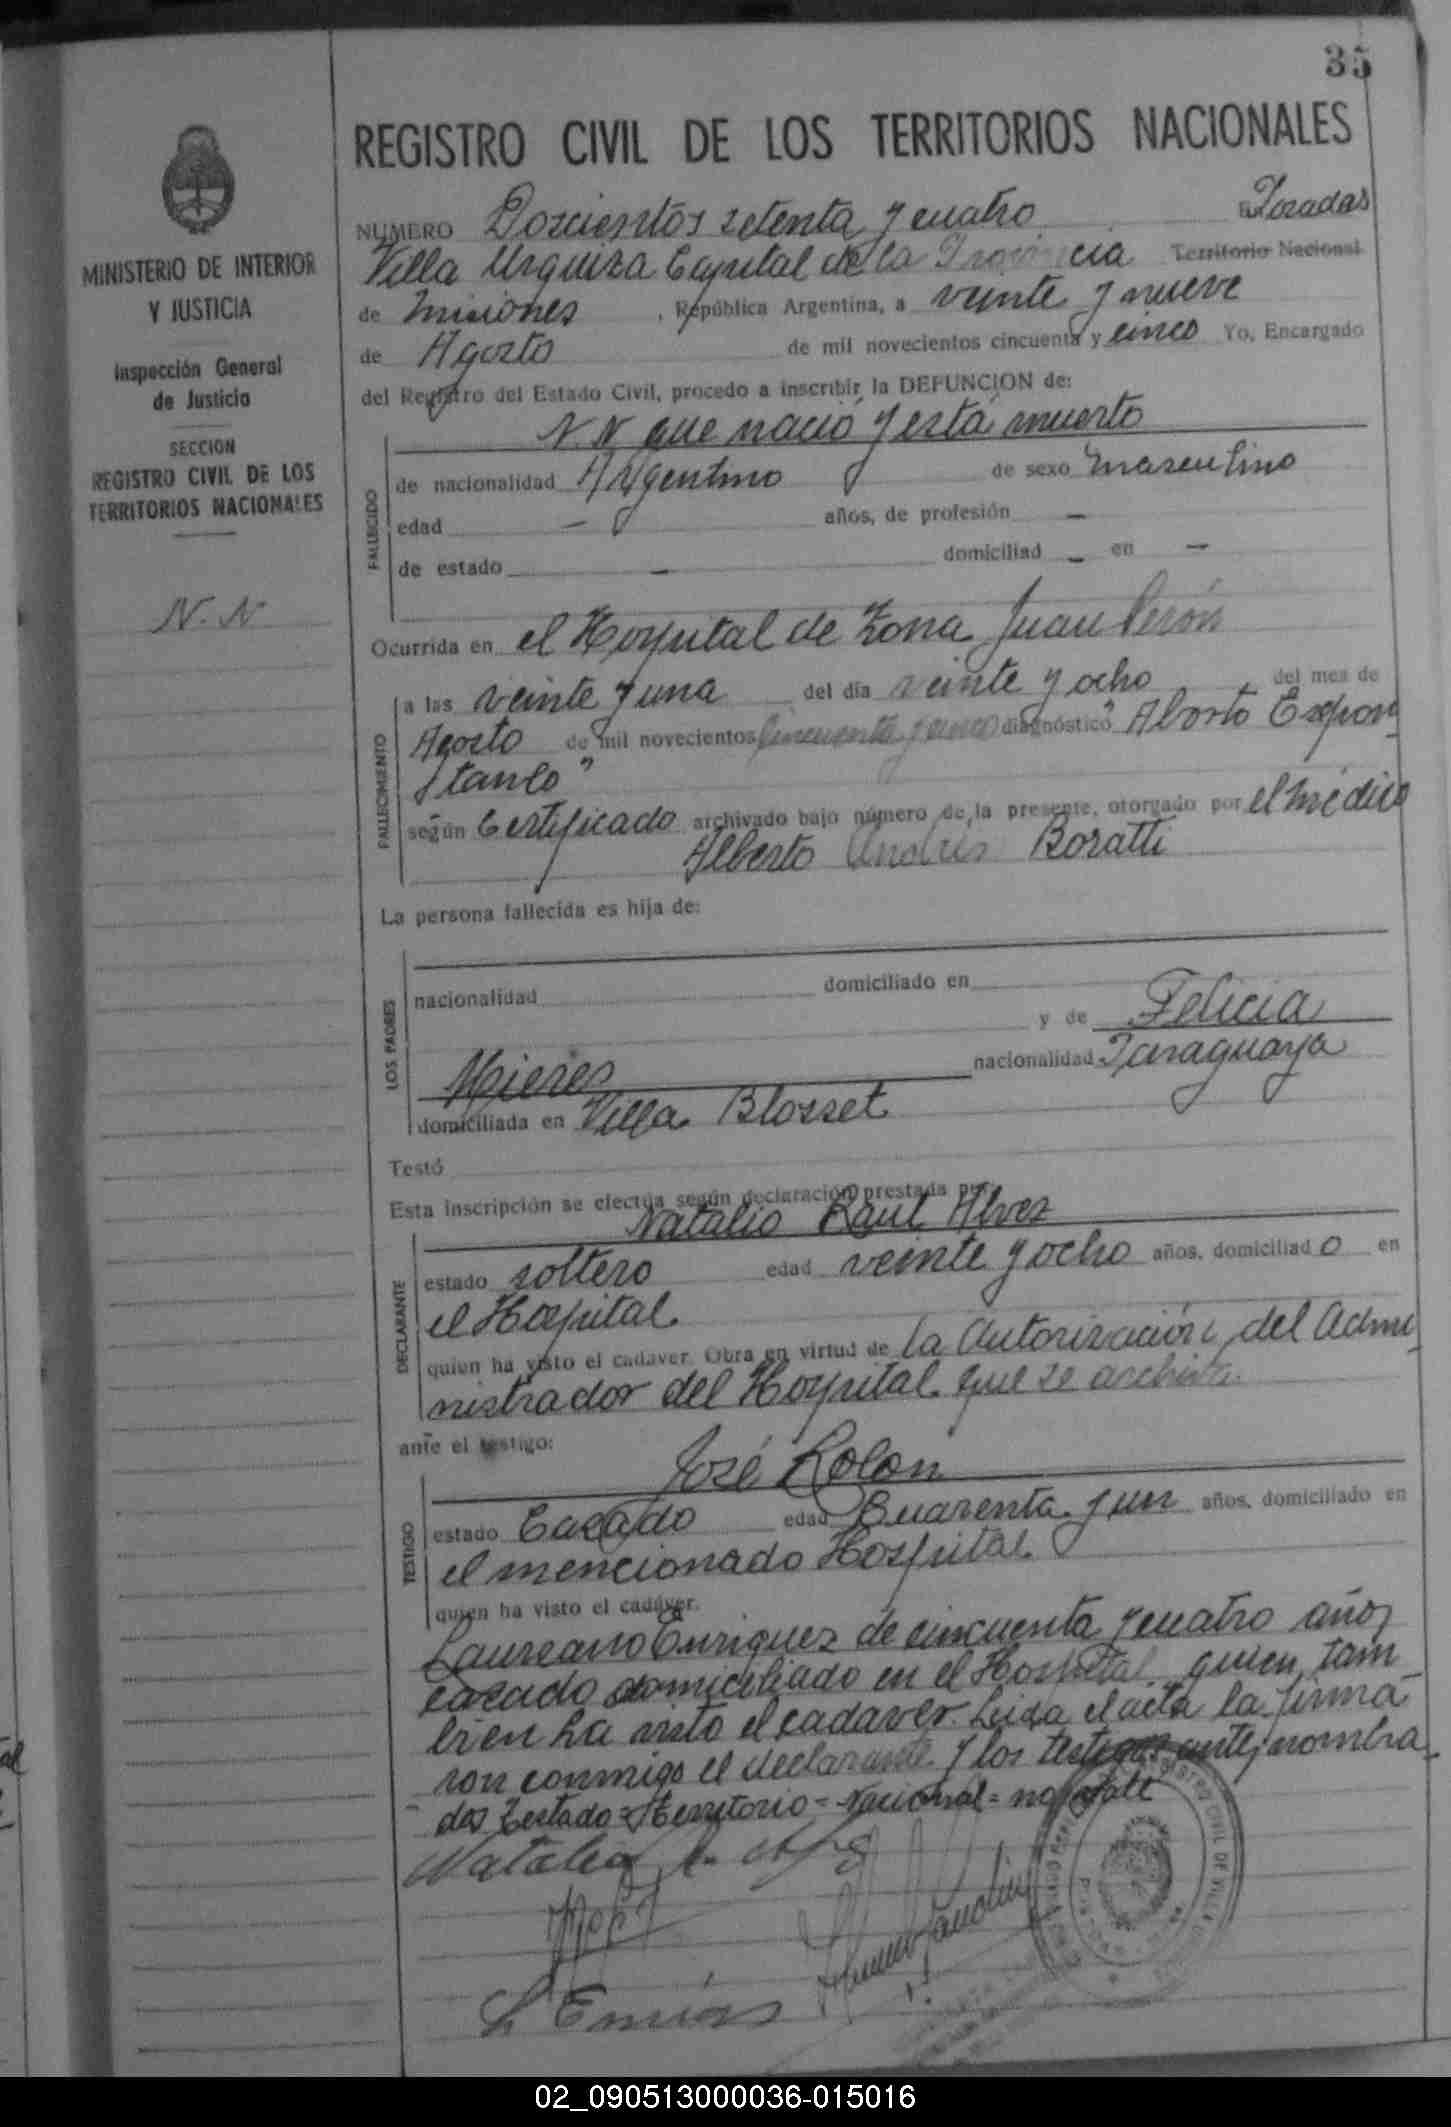 35
REGISTRO CIVIL DE LOS TERRITORIOS NACIONALES
MINISTERIO DE INTERIOR
Y JUSTICIA
Inspección General
de Justicia
SECCION
REGISTRO CIVIL DE LOS
TERRITORIOS NACIONALES
N. N
NUMERO Doscientos setenta y cuatro En Posadas
Villa Urquiza Capital de la Provincia Territorio Nacional
de Misiones, República Argentina, a veinte y nueve
de Agosto de mil novecientos cincuenta y cinco Yo, Encargado
del Registro del Estado Civil, procedo a inscribir la DEFUNCION de:
N. N que nació y está muerto
FALLECIDO
de nacionalidad Argentino de sexo masculino
edad - años, de profesión -
de estado - domiciliad - en -
Ocurrida en el Hospital de Zona Juan Perón
FALLECIMIENTO
a las veinte y una del día veinte y ocho del mes de
Agosto de mil novecientos cincuenta y cinco diagnóstico "Aborto Expon
staneo"
según Certificado archivado bajo número de la presente, otorgado por el médico
Alberto Andrés Boratti
La persona fallecida es hija de:
LOS PADRES
nacionalidad domiciliado en
y de Felicia
Mieres nacionalidad Paraguaya
domiciliada en Villa Blosset
Testó
Esta inscripción se efectúa según declaración prestada por
Natalio Raul Alvez
DECLARANTE
estado soltero edad veinte y ocho años, domiciliado en
el Hospital
quien ha visto el cadaver. Obra en virtud de la autorización del Admi-
nistrador del Hospital que se archiva.
ante el testigo:
José Rolon
TESTIGO
estado Casado edad Cuarenta y un años, domiciliado en
el mencionado Hospital
quien ha visto el cadáver.
Laureano Enriquez de cincuenta y cuatro años
casado domiciliado en el Hospital, quien tam-
bien ha visto el cadaver. Leida el acta la firma
ron conmigo el declarante y los testigos antes nombra-
dos Testado = Territorio = Nacional = no vale
Natalio R. Alvez
02_090513000036-015016